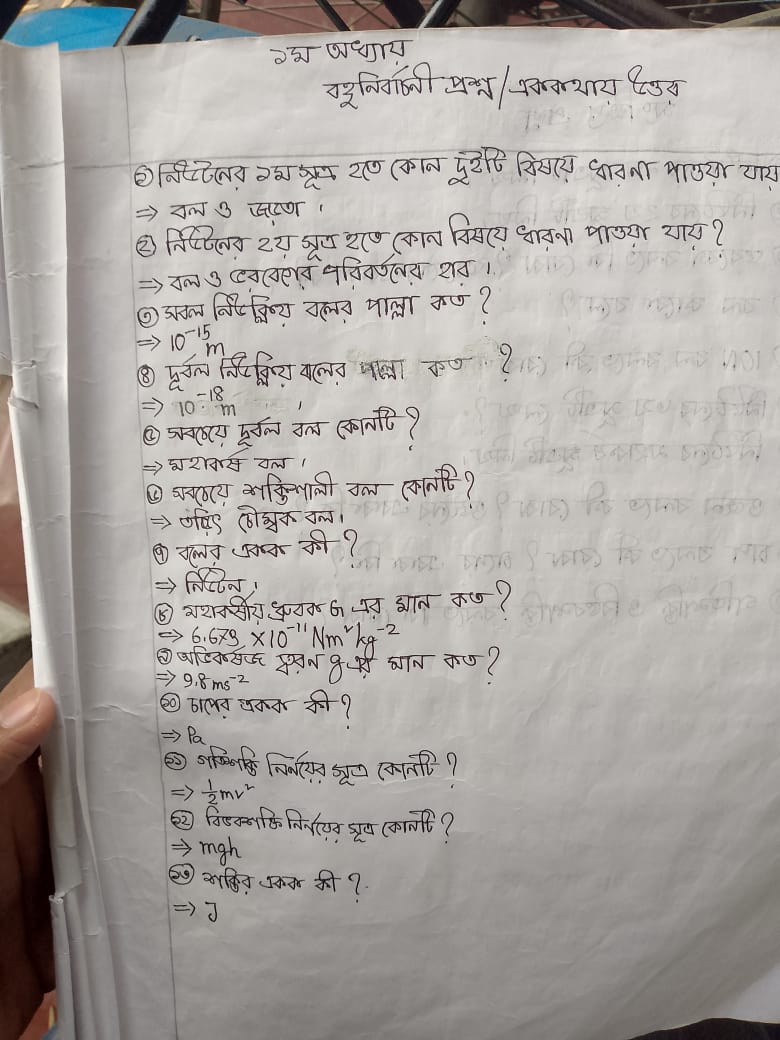 ১ম অধ্যায়
বহুনির্বাচনী প্রশ্ন/এককথায় উত্তর
১ নিউটনের ১ম সূত্র হতে কোন দুইটি বিষয়ে ধারনা পাওয়া যায়
⇒ বল ও জড়তা।
২ নিউটনের ২য় সূত্র হতে কোন বিষয়ে ধারনা পাওয়া যায়?
⇒ বল ও ভরবেগের পরিবর্তনের হার।
৩ সবল নিউক্লিয় বলের পাল্লা কত?
⇒ 10⁻¹⁵ m
৪ দূর্বল নিউক্লিয় বলের পাল্লা কত ?
⇒ 10⁻¹⁸ m
৫ সবচেয়ে দূর্বল বল কোনটি?
⇒ মহাকর্ষ বল।
৬ সবচেয়ে শক্তিশালী বল কোনটি?
⇒ তড়িৎ চৌম্বক বল।
৭ বলের একক কী?
⇒ নিউটন।
৮ মহাকর্ষীয় ধ্রুবক G এর মান কত?
⇒ 6.673 ×10⁻¹¹ Nm²kg⁻²
৯ অভিকর্ষজ ত্বরন g এর মান কত?
⇒ 9.8 ms⁻²
১০ চাপের একক কী?
⇒ Pa
১১ গতিশক্তি নির্নয়ের সূত্র কোনটি?
⇒ ½mv²
১২ বিভবশক্তি নির্নয়ের সূত্র কোনটি?
⇒ mgh
১৩ শক্তির একক কী?
⇒ J